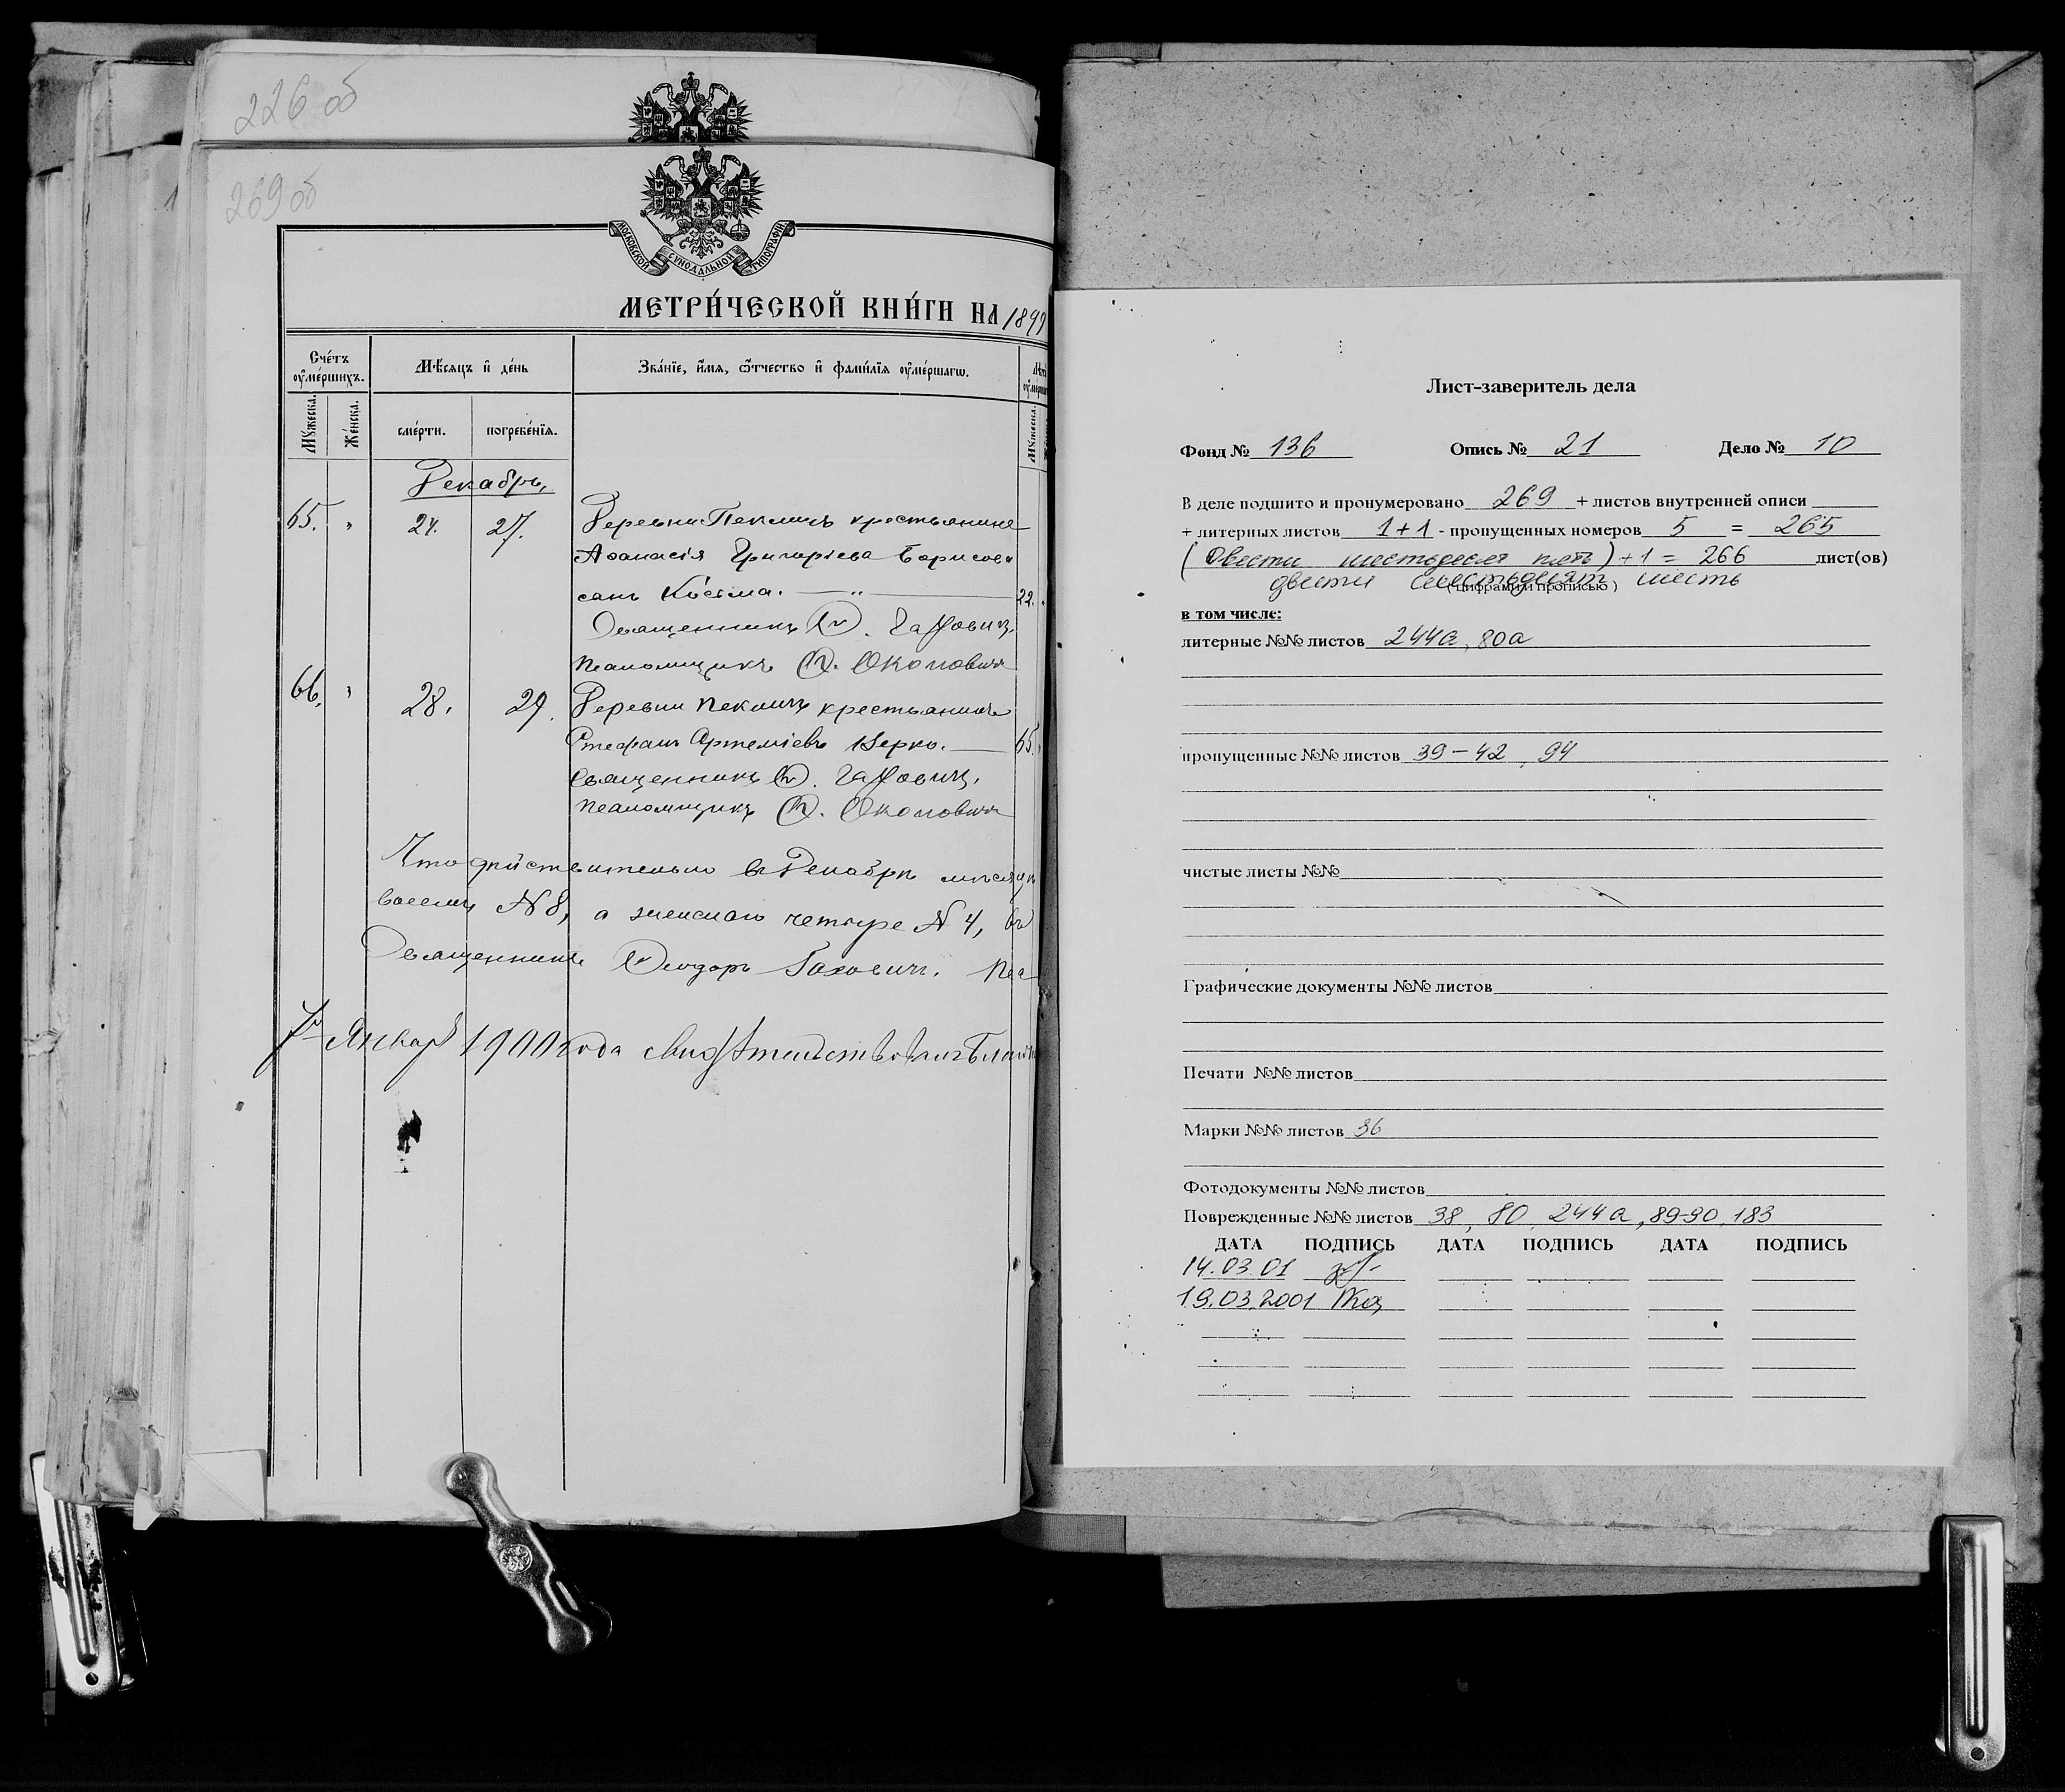 226 об
269 об
МОСКОВСКОЙ СУНОДАЛЬНОЙ ТИПОГРАФІИ
МЕТРИ́ЧЕСКОЙ КНИ́ГИ НА 1899
Сче́тъ оумéршихъ.
Мѣ́сяцъ и҆ де́нь
Зва́нїе, и҆́мя, ѻ҆́тчество и҆ фами́лїя оумéршагѡ.
Мꙋ́жеска.
Же́нска.
сме́рти.
погребе́нїя.
Мꙋ́жеска.
Декабрь,
65. " 24. 27. Деревни Пекличъ крестьянина
Аѳанасія Григоріева Борисова
сынъ Косьма. — " — 22.
Священникъ
Псаломщикъ Околовичъ
66. " 28. 29. Деревни Пекличъ крестьянинъ
Стефанъ Артеміевъ Верко. — 65.
Священникъ
Псаломщикъ Околовичъ
Что дѣйствительно въ Декабрѣ мѣсяцѣ
восемь № 8, а женскаго четыре № 4, въ
Священникъ Ѳеодоръ Гахович. Пса
Января 1900 года свидѣтельствовалъ
Лист-заверитель дела
Фонд № 136 Опись № 21 Дело № 10
В деле подшито и пронумеровано 269 + листов внутренней описи
+ литерных листов 1+1 - пропущенных номеров 5 = 265
(Двести шестьдесят пять) + 1 = 266 лист(ов)
двести шестьдесят шесть
(цифрами и прописью)
в том числе:
литерные №№ листов 244а, 80а
пропущенные №№ листов 39-42, 94
чистые листы №№
Графические документы №№ листов
Печати №№ листов
Марки №№ листов 36
Фотодокументы №№ листов
Поврежденные №№ листов 38, 80, 244а, 89-90, 183
ДАТА ПОДПИСЬ ДАТА ПОДПИСЬ ДАТА ПОДПИСЬ
14.03.01
19.03.2001